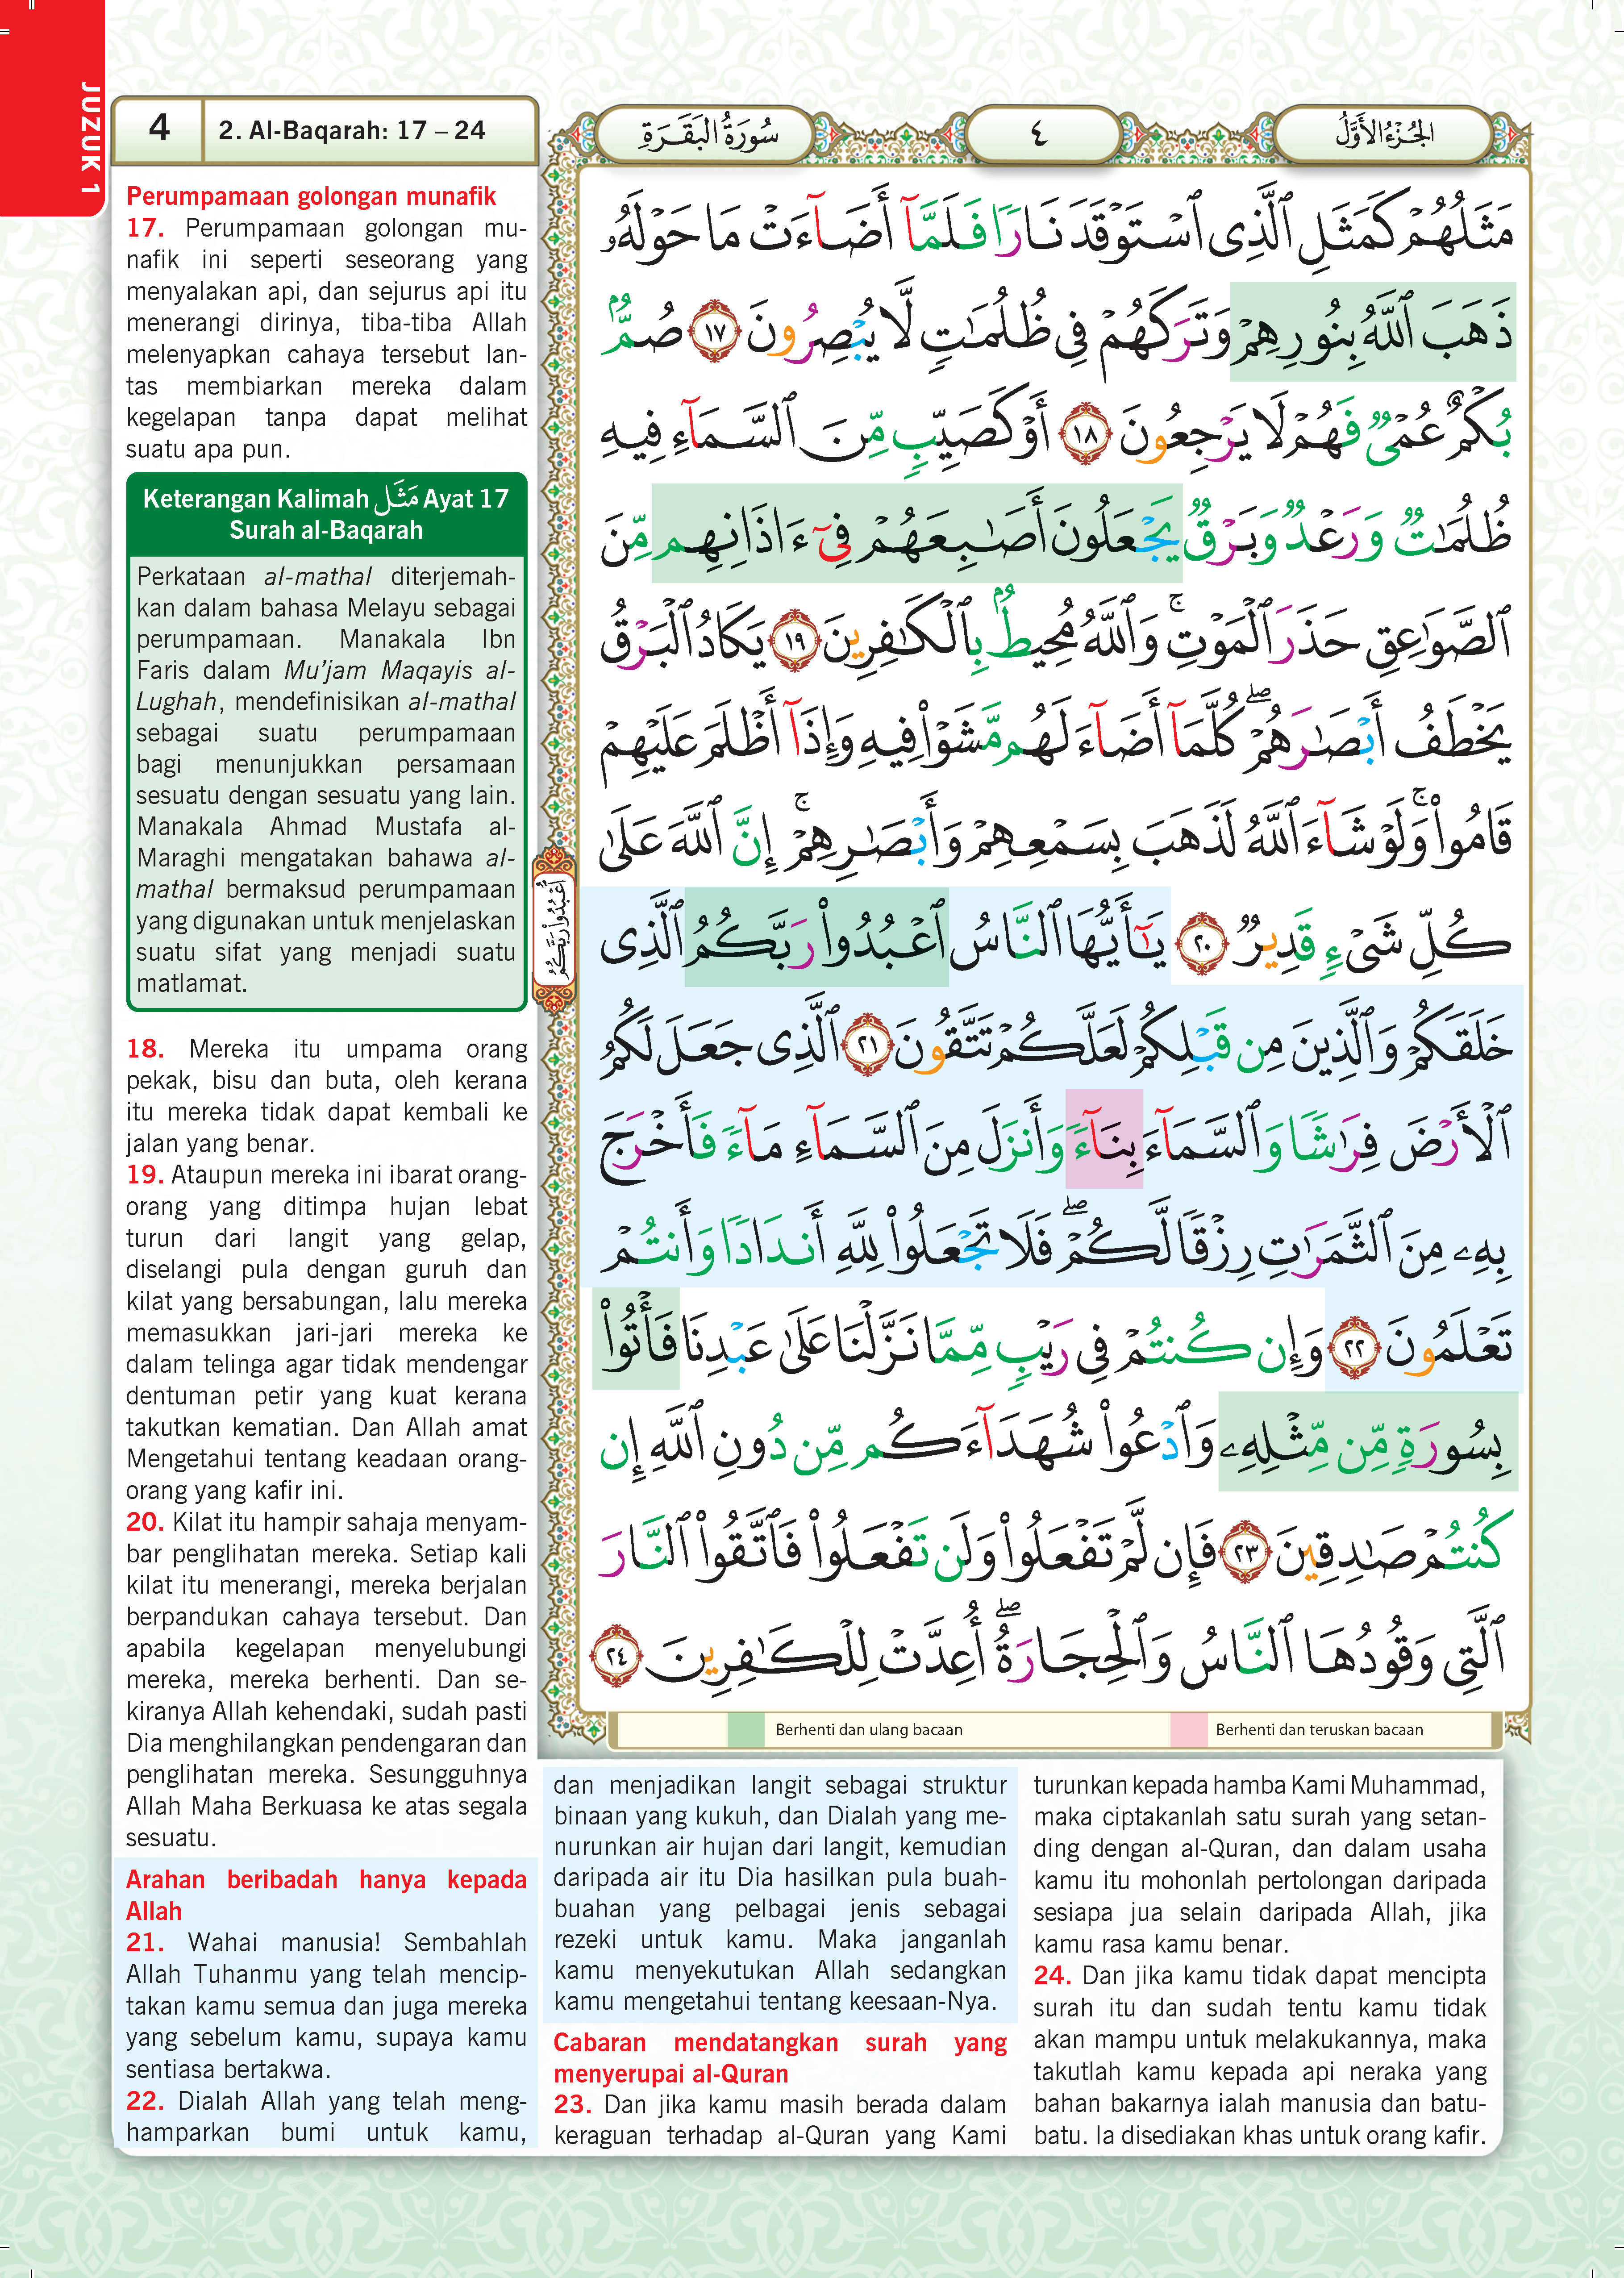 JUZUK 1
4
2. Al-Baqarah: 17 – 24
سُورَةُ الْبَقَرَةِ
٤
الْجُزْءُ الْأَوَّلُ
Perumpamaan golongan munafik
17. Perumpamaan golongan mu-
nafik ini seperti seseorang yang
menyalakan api, dan sejurus api itu
menerangi dirinya, tiba-tiba Allah
melenyapkan cahaya tersebut lan-
tas membiarkan mereka dalam
kegelapan tanpa dapat melihat
suatu apa pun.
Keterangan Kalimah مَثَل Ayat 17
Surah al-Baqarah
Perkataan al-mathal diterjemah-
kan dalam bahasa Melayu sebagai
perumpamaan. Manakala Ibn
Faris dalam Mu’jam Maqayis al-
Lughah, mendefinisikan al-mathal
sebagai suatu perumpamaan
bagi menunjukkan persamaan
sesuatu dengan sesuatu yang lain.
Manakala Ahmad Mustafa al-
Maraghi mengatakan bahawa al-
mathal bermaksud perumpamaan
yang digunakan untuk menjelaskan
suatu sifat yang menjadi suatu
matlamat.
18. Mereka itu umpama orang
pekak, bisu dan buta, oleh kerana
itu mereka tidak dapat kembali ke
jalan yang benar.
19. Ataupun mereka ini ibarat orang-
orang yang ditimpa hujan lebat
turun dari langit yang gelap,
diselangi pula dengan guruh dan
kilat yang bersabungan, lalu mereka
memasukkan jari-jari mereka ke
dalam telinga agar tidak mendengar
dentuman petir yang kuat kerana
takutkan kematian. Dan Allah amat
Mengetahui tentang keadaan orang-
orang yang kafir ini.
20. Kilat itu hampir sahaja menyam-
bar penglihatan mereka. Setiap kali
kilat itu menerangi, mereka berjalan
berpandukan cahaya tersebut. Dan
apabila kegelapan menyelubungi
mereka, mereka berhenti. Dan se-
kiranya Allah kehendaki, sudah pasti
Dia menghilangkan pendengaran dan
penglihatan mereka. Sesungguhnya
Allah Maha Berkuasa ke atas segala
sesuatu.
Arahan beribadah hanya kepada
Allah
21. Wahai manusia! Sembahlah
Allah Tuhanmu yang telah mencip-
takan kamu semua dan juga mereka
yang sebelum kamu, supaya kamu
sentiasa bertakwa.
22. Dialah Allah yang telah meng-
hamparkan bumi untuk kamu,
مَثَلُهُمْ كَمَثَلِ ٱلَّذِى ٱسْتَوْقَدَ نَارًا فَلَمَّآ أَضَآءَتْ مَا حَوْلَهُۥ
ذَهَبَ ٱللَّهُ بِنُورِهِمْ وَتَرَكَهُمْ فِى ظُلُمَـٰتٍ لَّا يُبْصِرُونَ ١٧ صُمٌّۢ
بُكْمٌ عُمْىٌ فَهُمْ لَا يَرْجِعُونَ ١٨ أَوْ كَصَيِّبٍ مِّنَ ٱلسَّمَآءِ فِيهِ
ظُلُمَـٰتٌ وَرَعْدٌ وَبَرْقٌ يَجْعَلُونَ أَصَـٰبِعَهُمْ فِىٓ ءَاذَانِهِم مِّنَ
ٱلصَّوَٰعِقِ حَذَرَ ٱلْمَوْتِ ۚ وَٱللَّهُ مُحِيطٌۢ بِٱلْكَـٰفِرِينَ ١٩ يَكَادُ ٱلْبَرْقُ
يَخْطَفُ أَبْصَـٰرَهُمْ ۖ كُلَّمَآ أَضَآءَ لَهُم مَّشَوْا۟ فِيهِ وَإِذَآ أَظْلَمَ عَلَيْهِمْ
قَامُوا۟ ۚ وَلَوْ شَآءَ ٱللَّهُ لَذَهَبَ بِسَمْعِهِمْ وَأَبْصَـٰرِهِمْ ۚ إِنَّ ٱللَّهَ عَلَىٰ
كُلِّ شَىْءٍ قَدِيرٌ ٢٠ يَـٰٓأَيُّهَا ٱلنَّاسُ ٱعْبُدُوا۟ رَبَّكُمُ ٱلَّذِى
خَلَقَكُمْ وَٱلَّذِينَ مِن قَبْلِكُمْ لَعَلَّكُمْ تَتَّقُونَ ٢١ ٱلَّذِى جَعَلَ لَكُمُ
ٱلْأَرْضَ فِرَٰشًا وَٱلسَّمَآءَ بِنَآءً وَأَنزَلَ مِنَ ٱلسَّمَآءِ مَآءً فَأَخْرَجَ
بِهِۦ مِنَ ٱلثَّمَرَٰتِ رِزْقًا لَّكُمْ ۖ فَلَا تَجْعَلُوا۟ لِلَّهِ أَندَادًا وَأَنتُمْ
تَعْلَمُونَ ٢٢ وَإِن كُنتُمْ فِى رَيْبٍ مِّمَّا نَزَّلْنَا عَلَىٰ عَبْدِنَا فَأْتُوا۟
بِسُورَةٍ مِّن مِّثْلِهِۦ وَٱدْعُوا۟ شُهَدَآءَكُم مِّن دُونِ ٱللَّهِ إِن
كُنتُمْ صَـٰدِقِينَ ٢٣ فَإِن لَّمْ تَفْعَلُوا۟ وَلَن تَفْعَلُوا۟ فَٱتَّقُوا۟ ٱلنَّارَ
ٱلَّتِى وَقُودُهَا ٱلنَّاسُ وَٱلْحِجَارَةُ ۖ أُعِدَّتْ لِلْكَـٰفِرِينَ ٢٤
ٱعْبُدُوا۟ رَبَّكُمُ
Berhenti dan ulang bacaan
Berhenti dan teruskan bacaan
dan menjadikan langit sebagai struktur
binaan yang kukuh, dan Dialah yang me-
nurunkan air hujan dari langit, kemudian
daripada air itu Dia hasilkan pula buah-
buahan yang pelbagai jenis sebagai
rezeki untuk kamu. Maka janganlah
kamu menyekutukan Allah sedangkan
kamu mengetahui tentang keesaan-Nya.
Cabaran mendatangkan surah yang
menyerupai al-Quran
23. Dan jika kamu masih berada dalam
keraguan terhadap al-Quran yang Kami
turunkan kepada hamba Kami Muhammad,
maka ciptakanlah satu surah yang setan-
ding dengan al-Quran, dan dalam usaha
kamu itu mohonlah pertolongan daripada
sesiapa jua selain daripada Allah, jika
kamu rasa kamu benar.
24. Dan jika kamu tidak dapat mencipta
surah itu dan sudah tentu kamu tidak
akan mampu untuk melakukannya, maka
takutlah kamu kepada api neraka yang
bahan bakarnya ialah manusia dan batu-
batu. Ia disediakan khas untuk orang kafir.